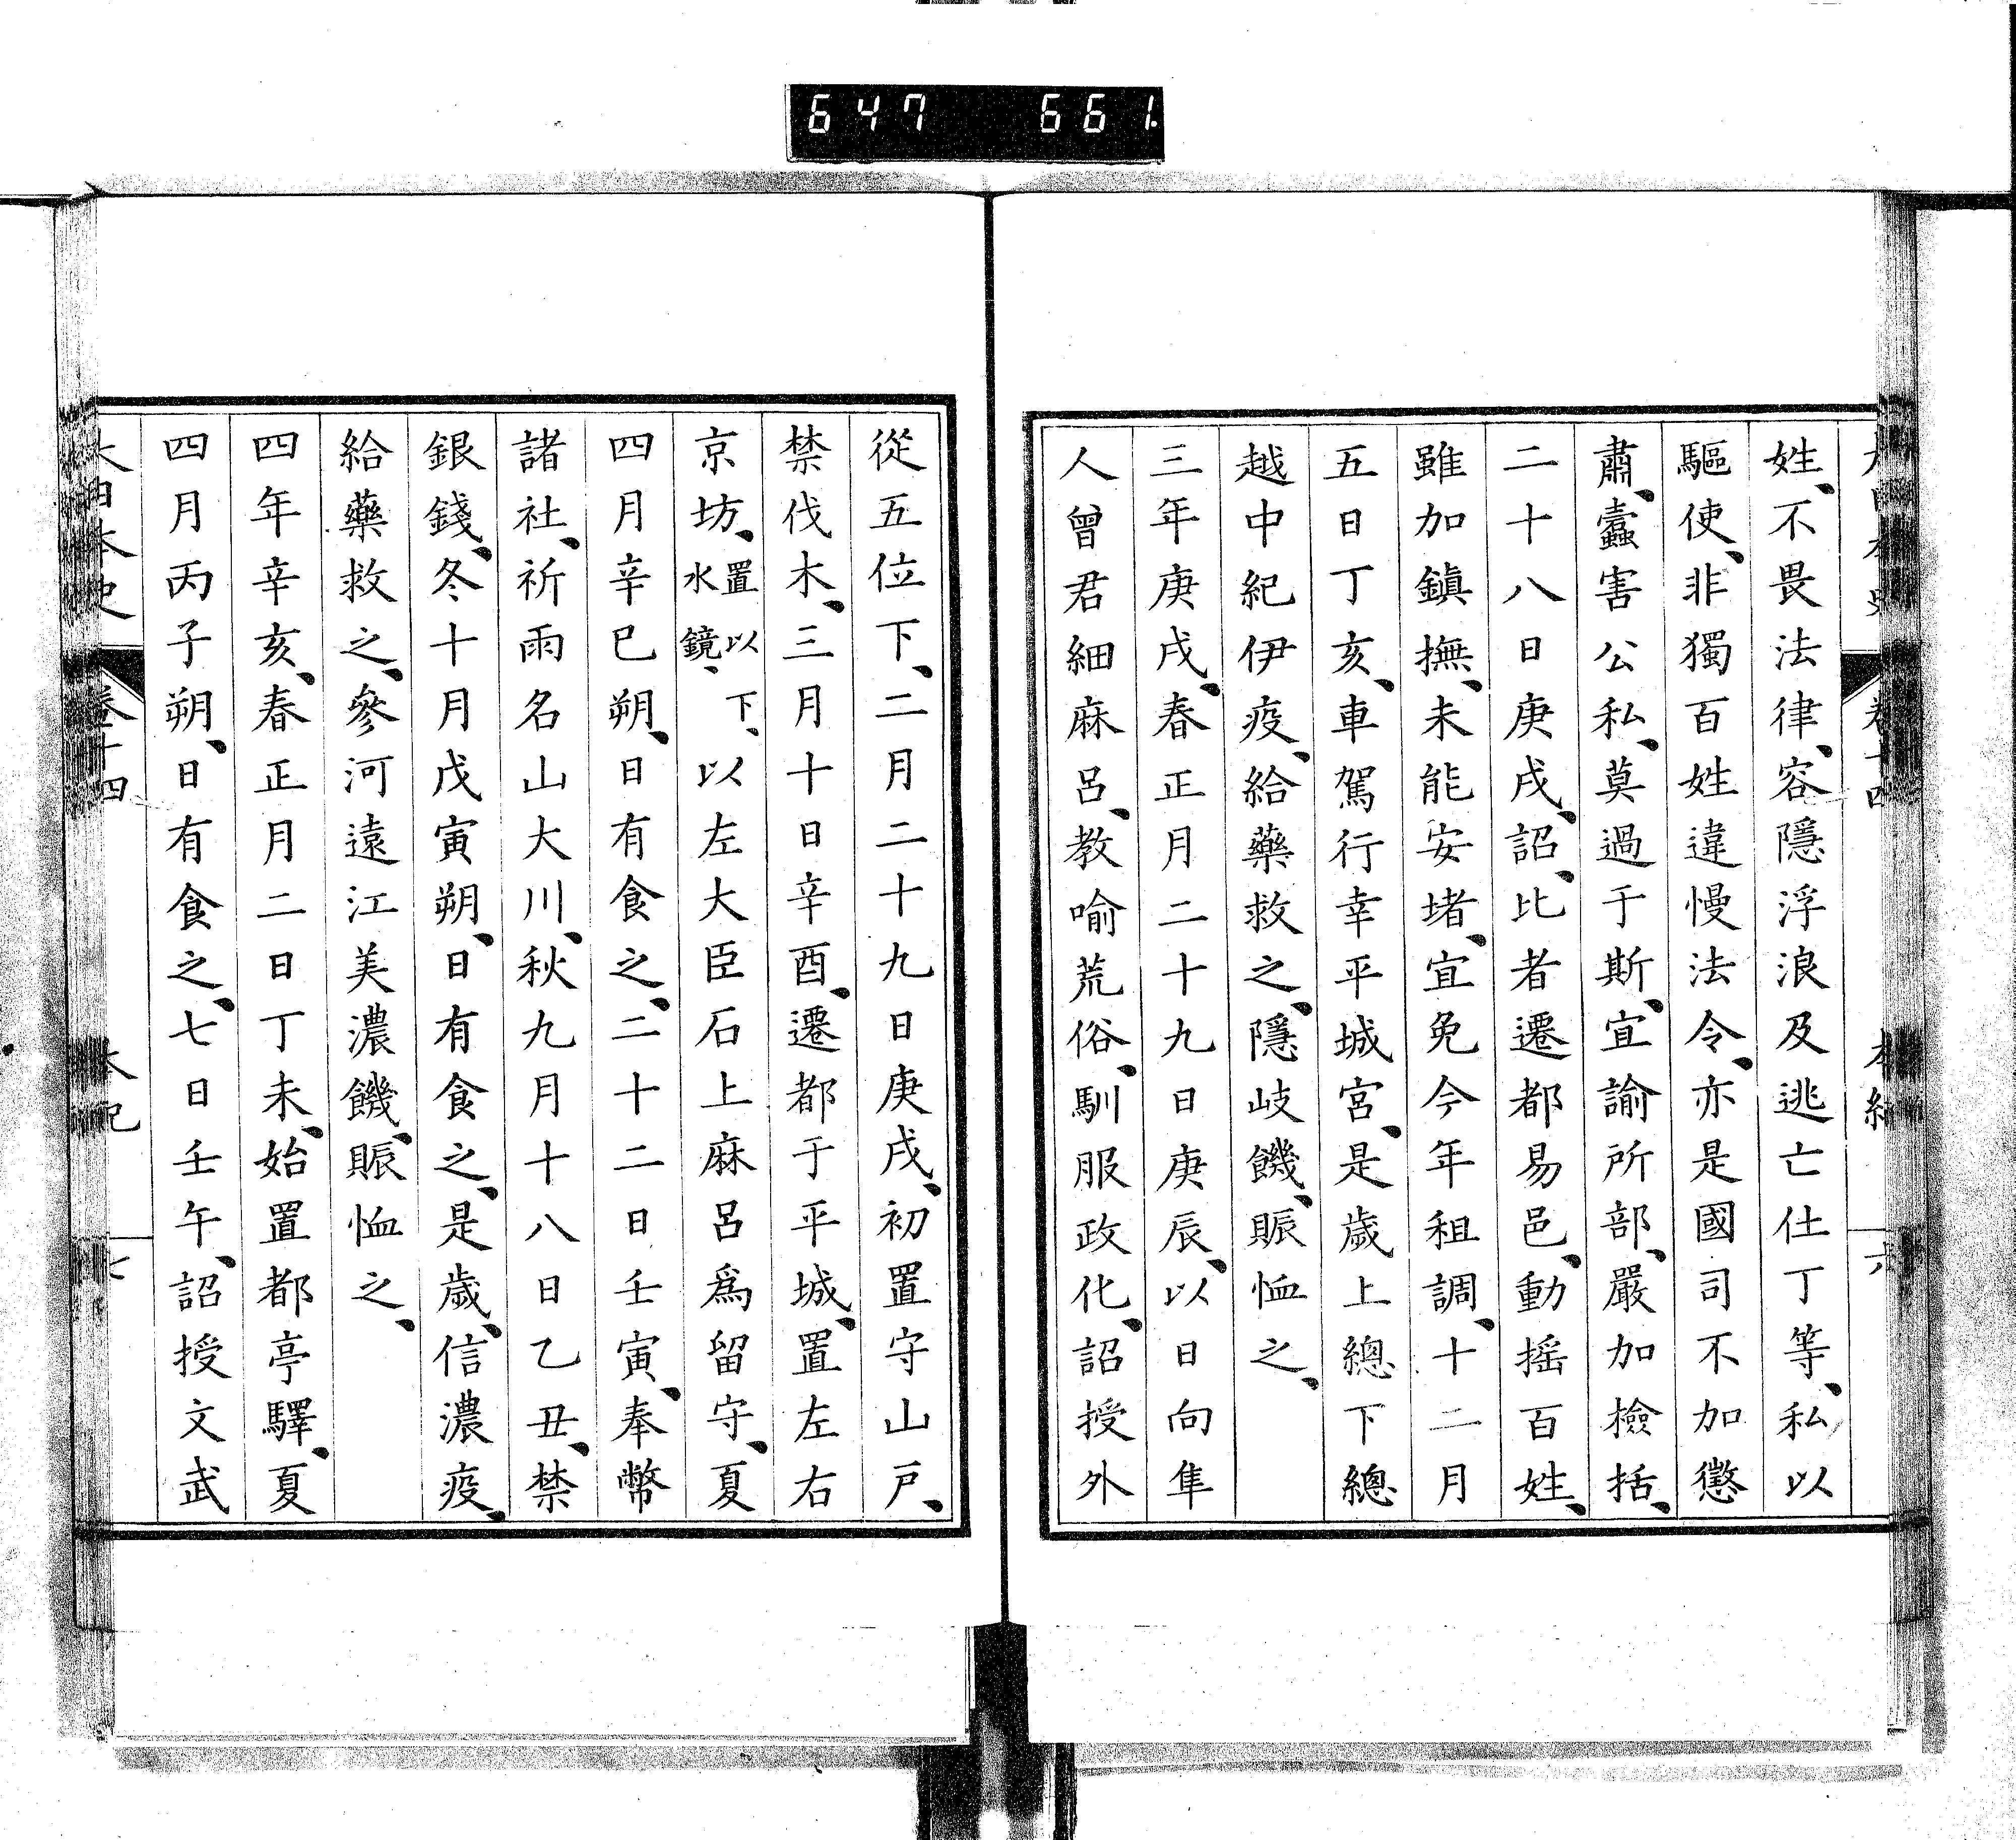 647 661.
姓、不畏法律、容隱浮浪及逃亡仕丁等、私以
驅使、非獨百姓違慢法令、亦是國司不加懲
肅、蠹害公私、莫過于斯、宜諭所部、嚴加檢括、
二十八日庚戌、詔、比者遷都易邑、動搖百姓、
雖加鎮撫、未能安堵、宜免今年租調、十二月
五日丁亥、車駕行幸平城宮、是歲上總下總
越中紀伊疫、給藥救之、隱岐饑、賑恤之、
三年庚戌、春正月二十九日庚辰、以日向隼
人曾君細麻呂、教喻荒俗、馴服政化、詔授外
從五位下、二月二十九日庚戌、初置守山戶、
禁伐木、三月十日辛酉、遷都于平城、置左右
京坊、置以下、水鏡、以左大臣石上麻呂爲留守、夏
四月辛巳朔、日有食之、二十二日壬寅、奉幣
諸社、祈雨名山大川、秋九月十八日乙丑、禁
銀錢、冬十月戊寅朔、日有食之、是歲、信濃疫、
給藥救之、參河遠江美濃饑、賑恤之、
四年辛亥、春正月二日丁未、始置都亭驛、夏
四月丙子朔、日有食之、七日壬午、詔授文武
大日本史 卷十四 本紀 七